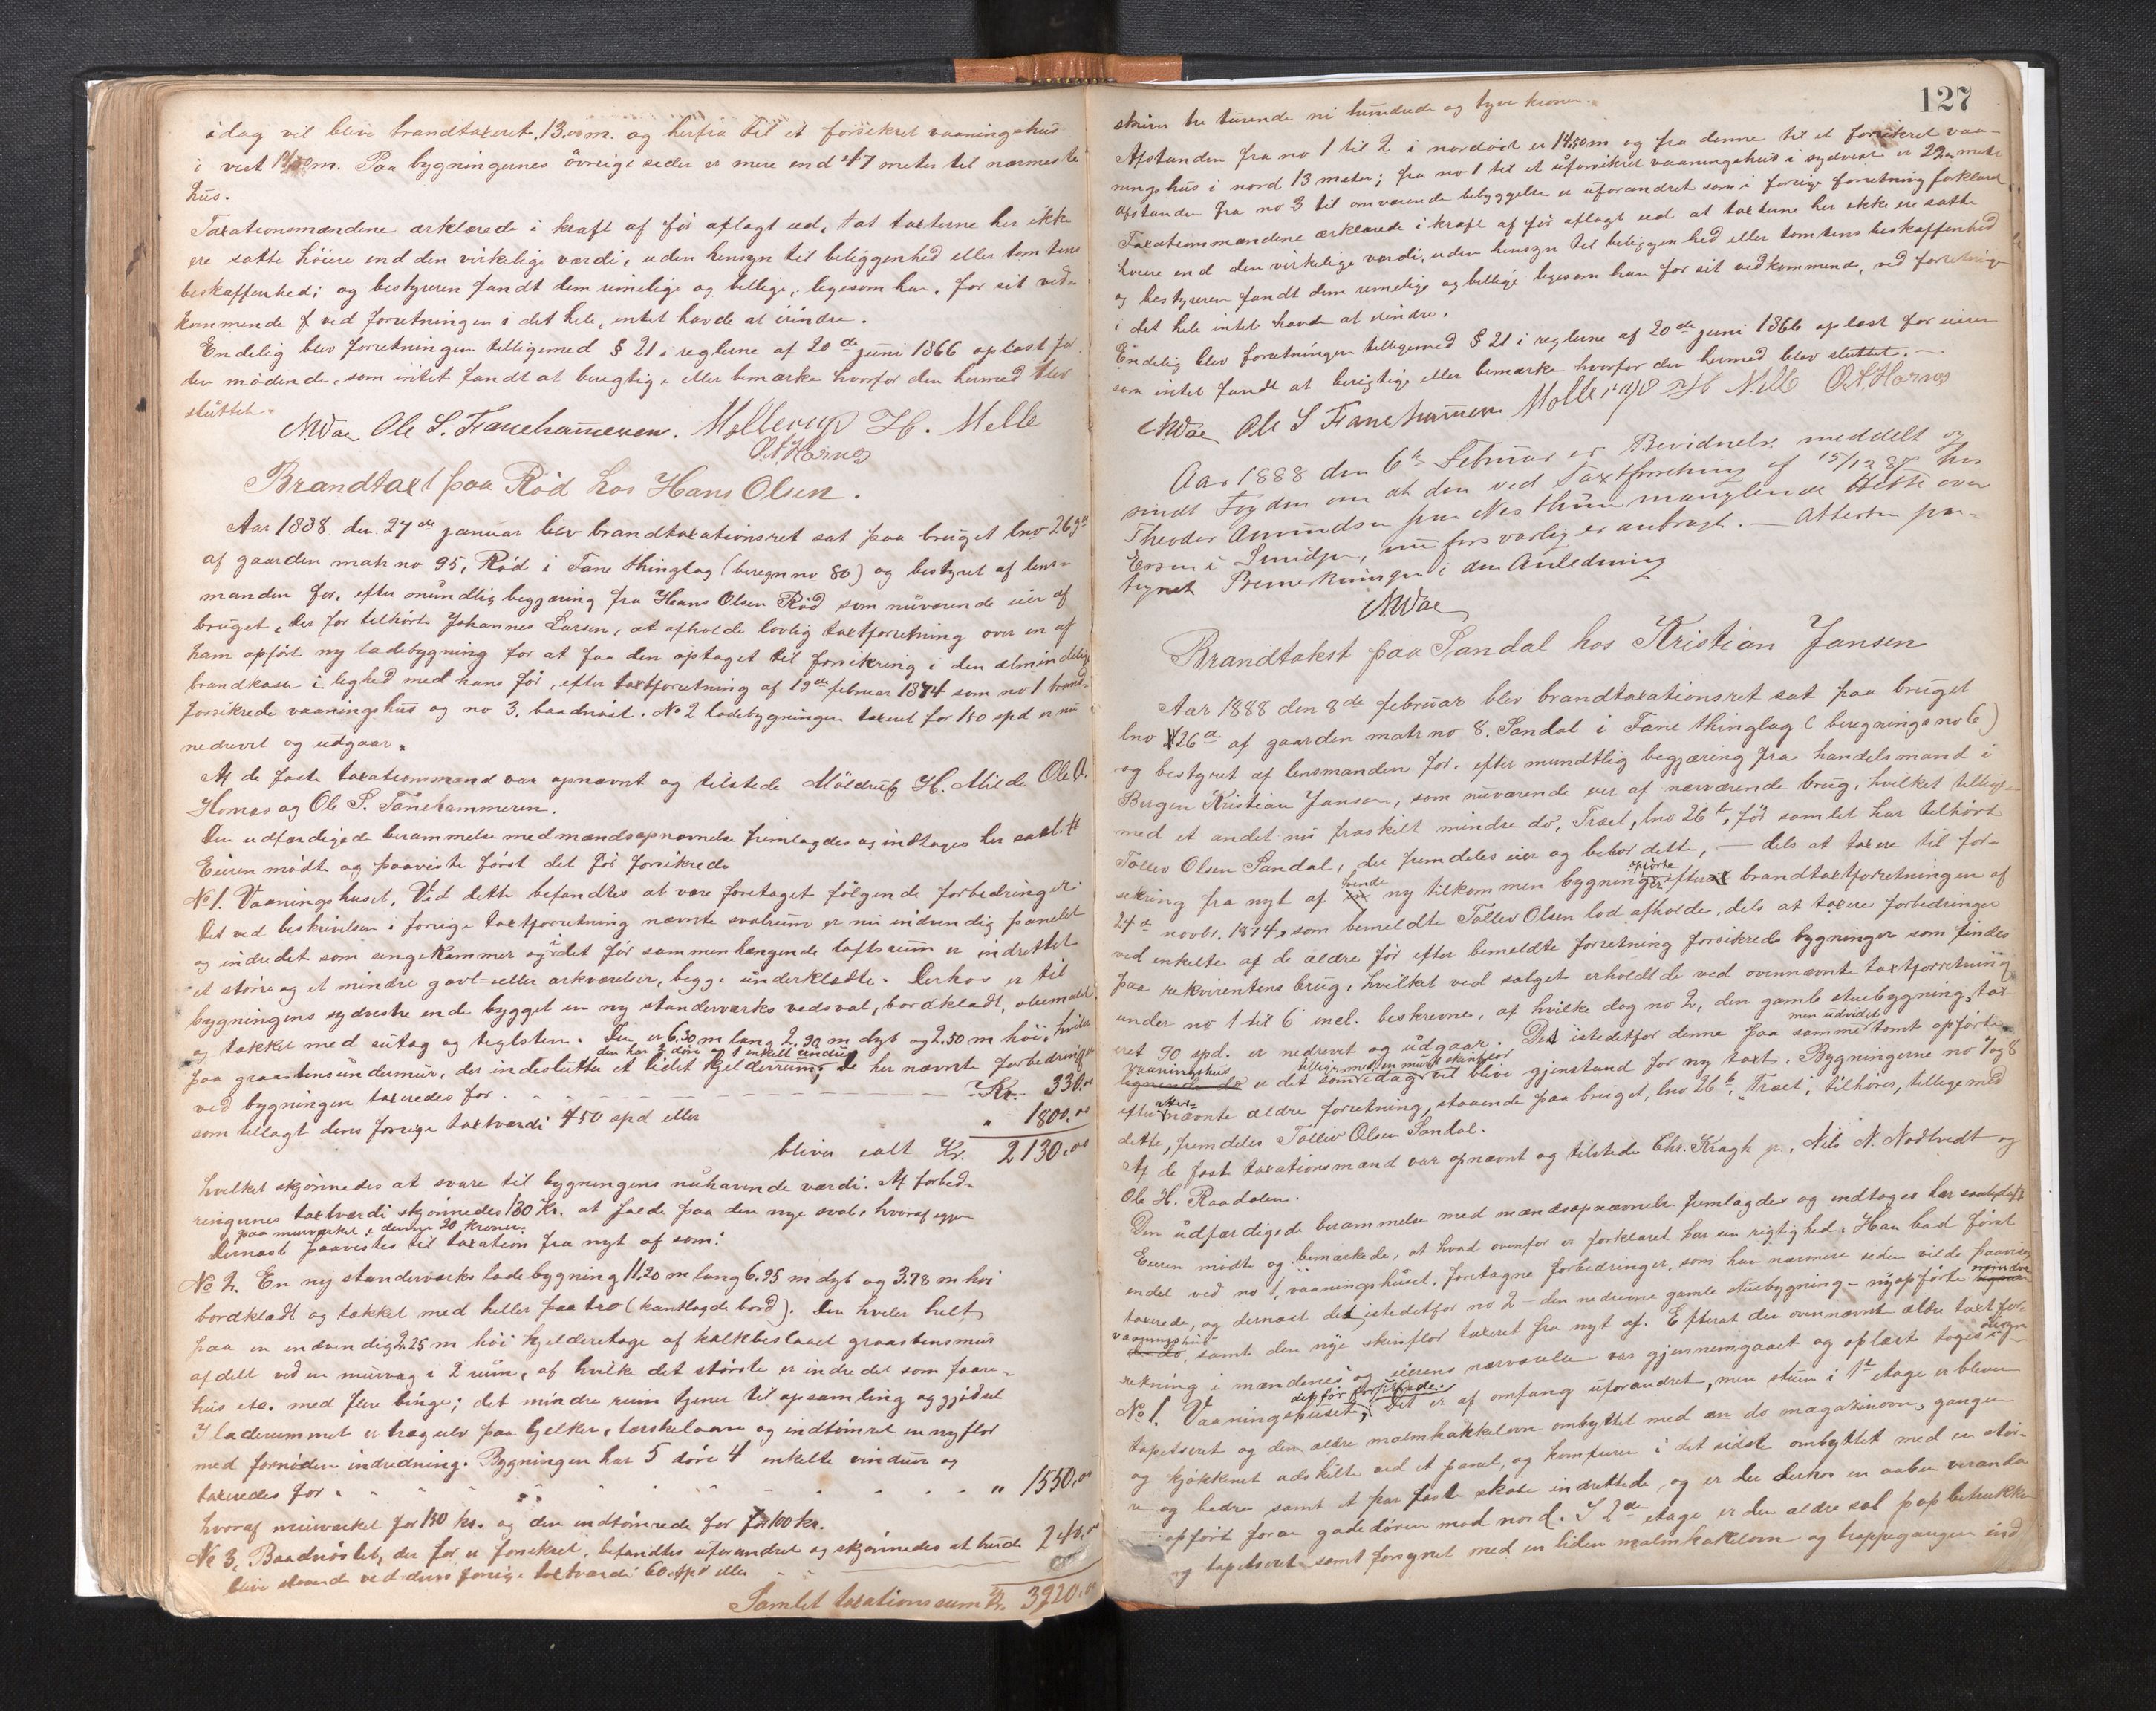 idag vil blive brandtaxeret, 13.00 m. og herfra til et forsikret vaaningshus
i vest m. Paa bygningernes øvrige sider er mere end 47 meter til nærmeste
hus.
Taxationsmændene erklærede i kraft af før aflagt ed, at taxterne her ikke
ere satte høiere end den virkelige værdi, uden hensyn til beliggenhed eller tomtens
beskaffenhed; og bestyreren fandt dem rimelige og billige, ligesom han, for sit ved-
kommende ved forretningen i det hele, intet havde at erindre.
Endelig blev forretningen tilligemed § 21 i reglerne af 20de juni 1866 oplæst for
den mødende, som intet fandt at berigtige eller bemærke hvorfor den hermed blev
sluttet.
NWae Ole S. Fanehammeren. Mollerup H. Melle
O.A. Hornes
Brandtaxt paa Rød hos Hans Olsen.
Aar 1888 den 27de januar blev brandtaxationsret sat paa bruget lno 263
af gaarden matr no 95, Rød i Fane thinglag (beregn no 80) og bestyret af lens-
manden for, efter mundtlig begjæring fra Hans Olsen Rød som nuværende eier af
bruget, der før tilhørte Johannes Larsen, at afholde lovlig taxtforretning over en af
ham opført ny ladebygning for at faa den optaget til forsikring i den almindelige
brandkasse i lighed med hans før, efter taxtforretning af 19de februar 1874 som no 1 brand-
forsikrede vaaningshus og no 3, baadnøst. No 2 ladebygningen taxeret for 150 spd er nu
nedrevet og udgaar.
Af de faste taxationsmænd var opnævnt og tilstede Møldrup H. Milde Ole A.
Hornes og Ole S. Fanehammeren.
Den udfærdigede berammelse med mandsopnævnelse fremlagdes og indtages her saal. #
Eieren mødte og paaviste først det før forsikrede
No 1. Vaaningshuset. Ved dette befandtes at være foretaget følgende forbedringer
Det ved beskrivelsen i forrige taxtforretning nævnte svalrum er nu indvendig panelet
og indredet som sengekammer og i det før sammenhængende loftsrum er indrettet
et større og et mindre gavl- eller arkværelse, begge underklædte. Derhos er til
bygningens sydvestre ende bygget en ny standerværks vedsval, bordklædt, oliemalet
og tækket med sutag og teglsten. Den er 6.30 m lang 2.90 m dyb og 2.50 m høi, hviler
den har 2 døre og 1 enkelt vindue
paa graastensundermur, der indeslutter et lidet kjelderrum; De her nævnte forbedringer
ved bygningen taxeredes for . . . Kr. 330.00
som tillagt dens forrige taxtværdi 450 spd eller " 1800.00
bliver ialt Kr. 2130.00
hvilket skjønnedes at svare til bygningens nuhavende værdi. Af forbed-
ringernes taxtværdi skjønnedes 130 Kr. at falde paa den nye sval, hvoraf igjen
paa murværket i denne 20 kroner.
Dernæst paavistes til taxation fra nyt af som:
No 2. En ny standerværks ladebygning 11,20 m lang 6.95 m dyb og 3.78 m høi
bordklædt og tækket med heller paa tro (kantlagde bord). Den hviler helt
paa en indvendig 2.25 m høi kjelderetage af kalkbeslaaet graastensmur
afdelt ved en murvæg i 2 rum, af hvilke det største er indredet som faare-
hus etc. med flere binge; det mindre rum tjener til opsamling af gjødsel
I laderummet er trægulv paa bjelker, tærskelaave og indtømret en ny flor
med fornøden indredning. Bygningen har 5 døre 4 enkelte vinduer og
taxeredes for . . . " 1550.00
hvoraf murværket for 150 kr. og den indtømrede flor 100 kr.
No 3. Baadnøstet, der før er forsikret, befandtes uforandret og skjønnedes at burde 240.00
blive staaende ved dens forrige taxtværdi 60 spd eller
Samlet taxationssum Kr. 3920.00
127
skriver tre tusende ni hundrede og tyve kroner.
Afstanden fra no 1 til 2 i nordost er 14.50 m og fra denne til et forsikret vaa-
ningshus i nord 13 meter; fra no 1 til et uforsikret vaaningshus i sydvest er 22 meter
afstanden fra no 3 til omværende bebyggelse er uforandret som i forrige forretning forklaret
Taxationsmændene erklærede i kraft af før aflagt ed at taxterne her ikke ere satte
høiere end den virkelige værdi, uden hensyn til beliggenhed eller tomtens beskaffenhed
og bestyreren fandt dem rimelige og billige ligesom han for sit vedkommende, ved forretningen
i det hele intet havde at erindre.
Endelig blev forretningen tilligemed § 21 i reglerne af 20de juni 1866 oplæst for eieren
som intet fandt at berigtige eller bemærke hvorfor den hermed blev sluttet. —
NWae Ole S Fanehammeren Mollerup H Melle O.A. Hornes
Aar 1888 den 6te Februar er Bevidnelse meddelt og
sendt Fogden om at den ved Taxtforretning af 15/12 87 hos
Theodor Amundsen paa Nesthun manglende Hette over
Essen i Smidjen, nu forsvarlig er anbragt. — Attesten paa-
tegnet Bemerkningen i den Anledning
NWae
Brandtakst paa Sandal hos Kristian Jansen
Aar 1888 den 8de februar blev brandtaxationsret sat paa bruget
lno 26a af gaarden matr no 8. Sandal i Fane thinglag (beregnings no 6)
og bestyret af lensmanden for, efter mundtlig begjæring fra handelsmand i
Bergen Kristian Janson, som nuværende eier af nærværende brug, hvilket tillige-
med et andet nu fraskilt mindre do, Træet, lno 26b, før samlet har tilhørt
Tollev Olsen Sandal, der fremdeles eier og bebor dette, — dels at taxere til for-
sikring fra nyt af tvende ny tilkommen bygninger opførte efter brandtaxtforretningen af
24de novbr. 1874, som bemeldte Tollev Olsen lod afholde, dels at taxere forbedringer
ved enkelte af de ældre før efter bemeldte forretning forsikrede bygninger som findes
paa rekvirentens brug, hvilket ved salget erholdt de ved ovennævnte taxtforretning
under no 1 til 6 incl. beskrevne, af hvilke dog no 2, den gamle stuebygning, tax-
eret 90 spd. er nedrevet og udgaar. Det istedetfor denne paa samme men udvidet tomt opførte
vaaningshus tilligemed en muret skinflor
er det som idag vil blive gjenstand for ny taxt. Bygningerne no 7 og 8
efter oftnævnte ældre forretning, staaende paa bruget, lno 26b, "Træet", tilhører, tilligemed
dette, fremdeles Tolliv Olsen Sandal.
Af de faste taxationsmænd var opnævnt og tilstede Chr. Kragh jr, Nils N. Nødtvedt og
Ole H. Raadalen.
Den udfærdigede berammelse med mandsopnævnelse fremlagdes og indtages her saalydende #
Eieren mødte og bemærkede, at hvad ovenfor er forklaret har sin rigtighed. Han bad først
endel ved no 1, vaaningshuset, foretagne forbedringer, som han nærmere siden vilde paavise
taxerede, og dernæst det istedetfor no 2 – den nedrevne gamle stuebygning – nyopførte mindre
vaaningshus, samt den nye skinflor taxeret fra nyt af. Efterat den ovennævnte ældre taxtfor-
retning i mændenes og eierens nærværelse var gjennemgaaet og oplæst toges i øiesyn
No 1. Vaaningshuset, det før forsikrede. Det er af omfang uforandret, men stuen i 1te etage er bleven
tapetseret og den ældre malmkakkelovn ombyttet med en do magazinovn, gangen
og kjøkkenet adskilte ved et panel, og komfuren i det sidste ombyttet med en stør-
re og bedre samt et par faste skabe indrettede og er der derhos en aaben veranda
opført foran gadedøren mod nord. I 2den etage er den ældre sal papbetrukken
og tapetseret samt forsynet med en liden malmkakelovn og trappegangen ind